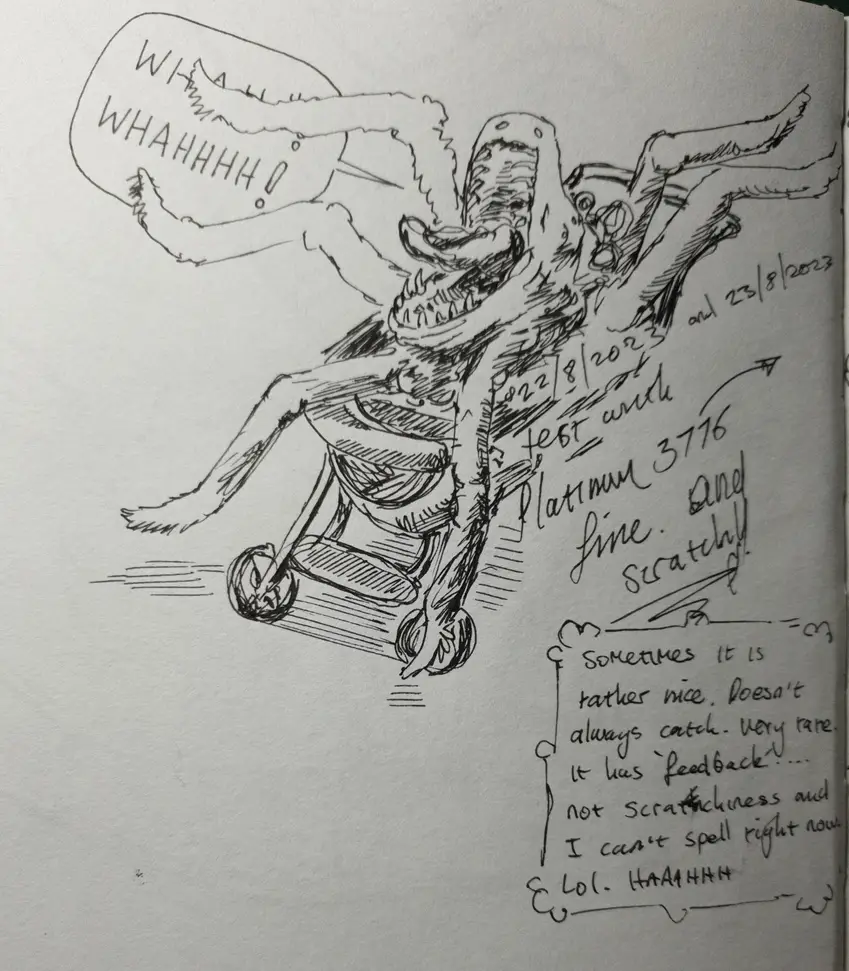 WHAHHH
WHAHHHH!
22/8/2023 and 23/8/2023
test with
Platinum 3776
fine. and
scratchy
Sometimes it is
rather nice. Doesn't
always catch. Very rare.
It has 'feedback'....
not scratchiness and
I can't spell right now.
Lol. HAAAHHH